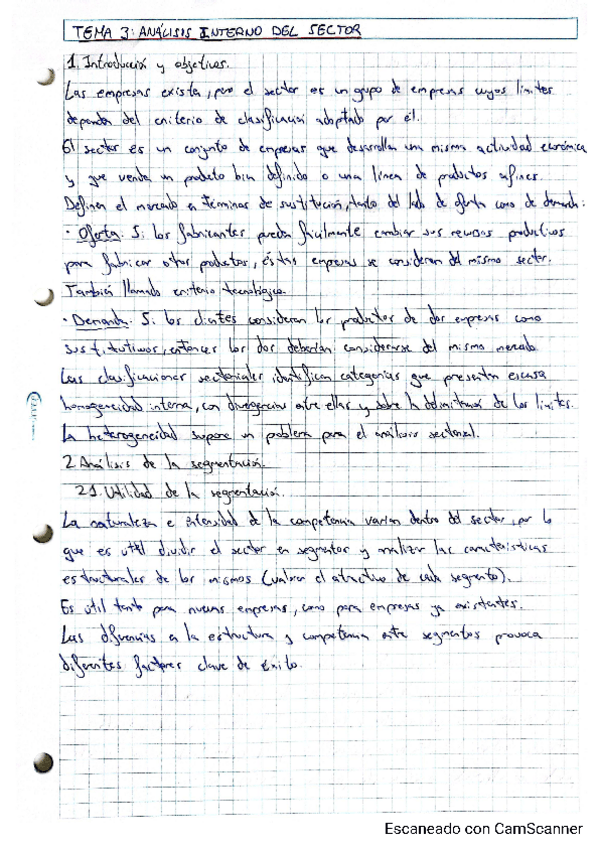 TEMA 3: ANÁLISIS INTERNO DEL SECTOR
1. Introducción y objetivos.
Las empresas existen, pero el sector es un grupo de empresas cuyos límites
dependen del criterio de clasificación adoptado por él.
El sector es un conjunto de empresas que desarrollan una misma actividad económica
y que venden un producto bien definido o una línea de productos afines.
Definen el mercado en términos de sustitución, tanto del lado de oferta como de demanda:
· Oferta. Si los fabricantes pueden fácilmente cambiar sus recursos productivos
para fabricar otros productos, éstas empresas se consideran del mismo sector.
También llamado criterio tecnológico.
· Demanda. Si los clientes consideran los productos de dos empresas como
sustitutivos, entonces los dos deberían considerarse del mismo mercado.
Las clasificaciones sectoriales identifican categorías que presentan escasa
homogeneidad interna, con divergencias entre ellas y sobre la delimitación de los límites.
La heterogeneidad supone un problema para el análisis sectorial.
2. Análisis de la segmentación.
2.1. Utilidad de la segmentación.
La naturaleza e intensidad de la competencia varían dentro del sector, por lo
que es útil dividir el sector en segmentos y analizar las características
estructurales de los mismos (valorar el atractivo de cada segmento).
Es útil tanto para nuevas empresas, como para empresas ya existentes.
Las diferencias en la estructura y competencia entre segmentos provoca
diferentes factores clave de éxito.
Escaneado con CamScanner